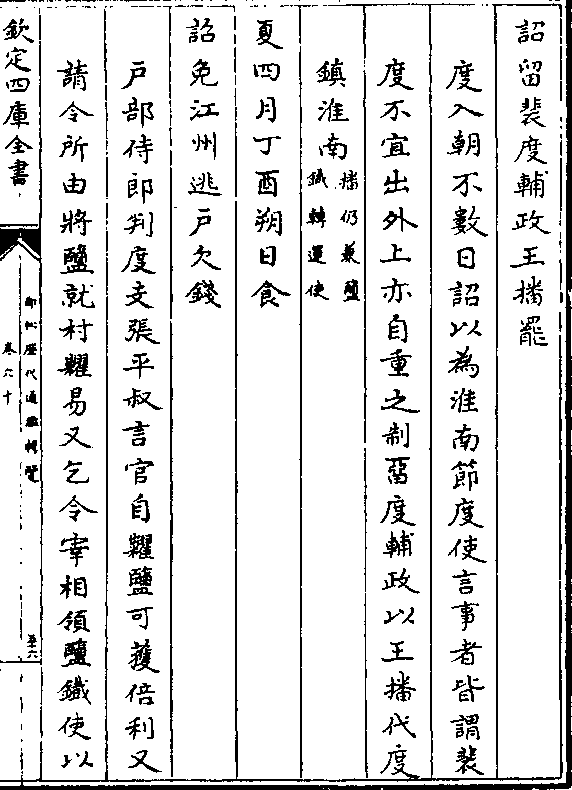 詔留裴度輔政王播罷
度入朝不數日詔以為淮南節度使言事者皆謂裴
度不宜出外上亦自重之制留度輔政以王播代度
鎮淮南播仍兼鹽
鐵轉運使
夏四月丁酉朔日食
詔免江州逃戶欠錢
戶部侍郎判度支張平叔言官自糶鹽可獲倍利又
請令所由將鹽就村糶易又乞令宰相領鹽鐵使以
欽定四庫全書
御批歷代通鑑輯覽
卷六十